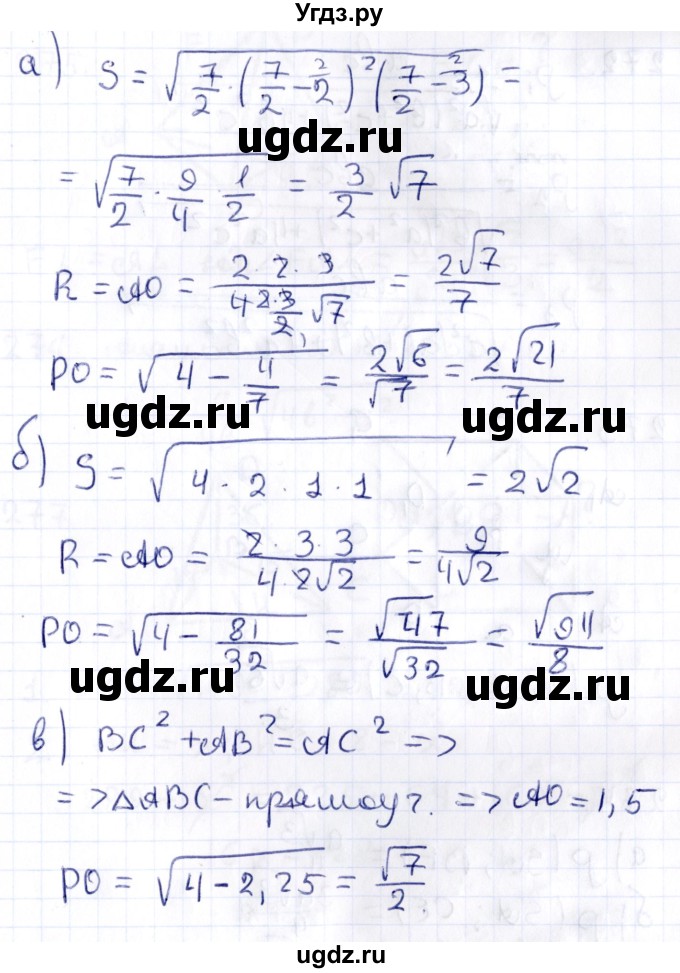 Угдз.ру
а) S = √(7/2 · (7/2 - 2)² (7/2 - 3)) =
ugdz.ru
= √(7/2 · 9/4 · 1/2) = 3/2 √7
R = AO = (2 · 2 · 3)/(4 · 3/2 √7) = 2√7/7
PO = √(4 - 4/7) = 2√6/√7 = 2√21/7
ugdz.ru ugdz.ru
б) S = √(4 · 2 · 1 · 1) = 2√2
R = AO = (2 · 3 · 3)/(4 · 2√2) = 9/(4√2)
PO = √(4 - 81/32) = √47/√32 = √94/8
ugdz.ru ugdz.ru
в) BC² + AB² = AC² =>
=> ΔABC - прямоуг. => AO = 1,5
PO = √(4 - 2,25) = √7/2
ugdz.ru